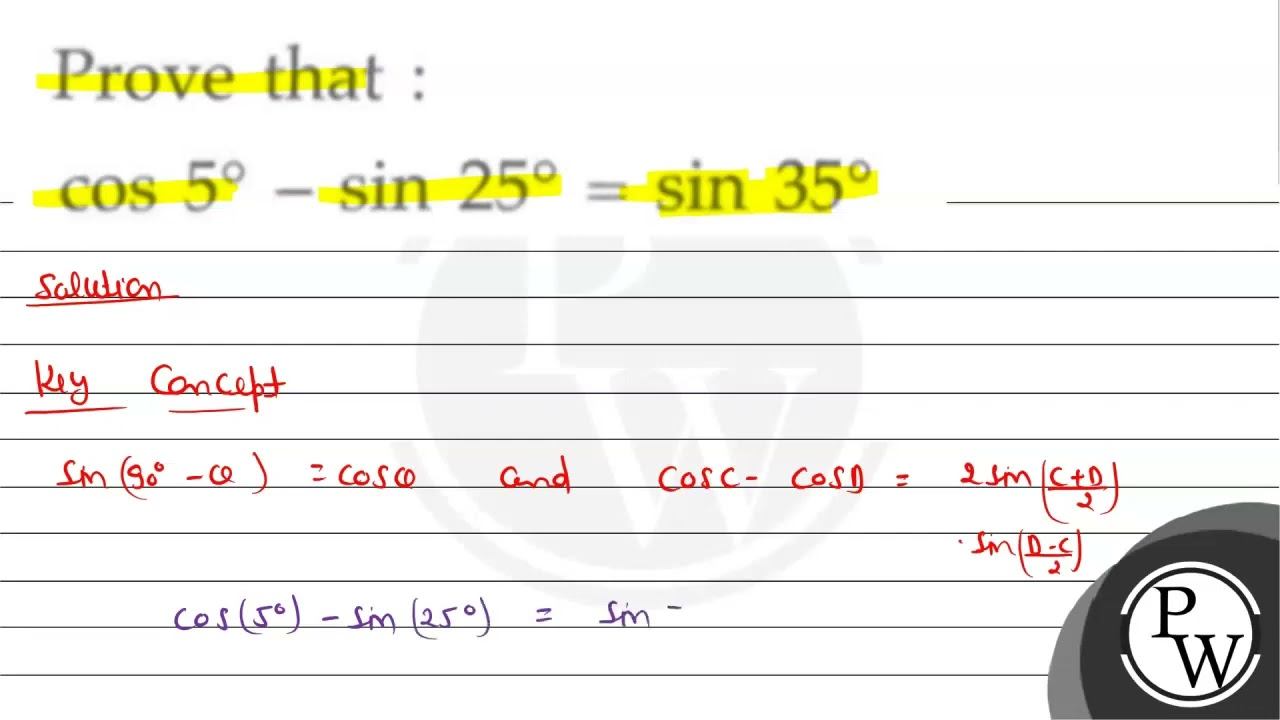 Prove that :
cos 5° − sin 25° = sin 35°
Solution
Key Concept
sin (90° - θ) = cosθ and cosC - cosD = 2sin (C+D/2)
· sin (D-C/2)
cos (5°) - sin (25°) = sin
PW
PW